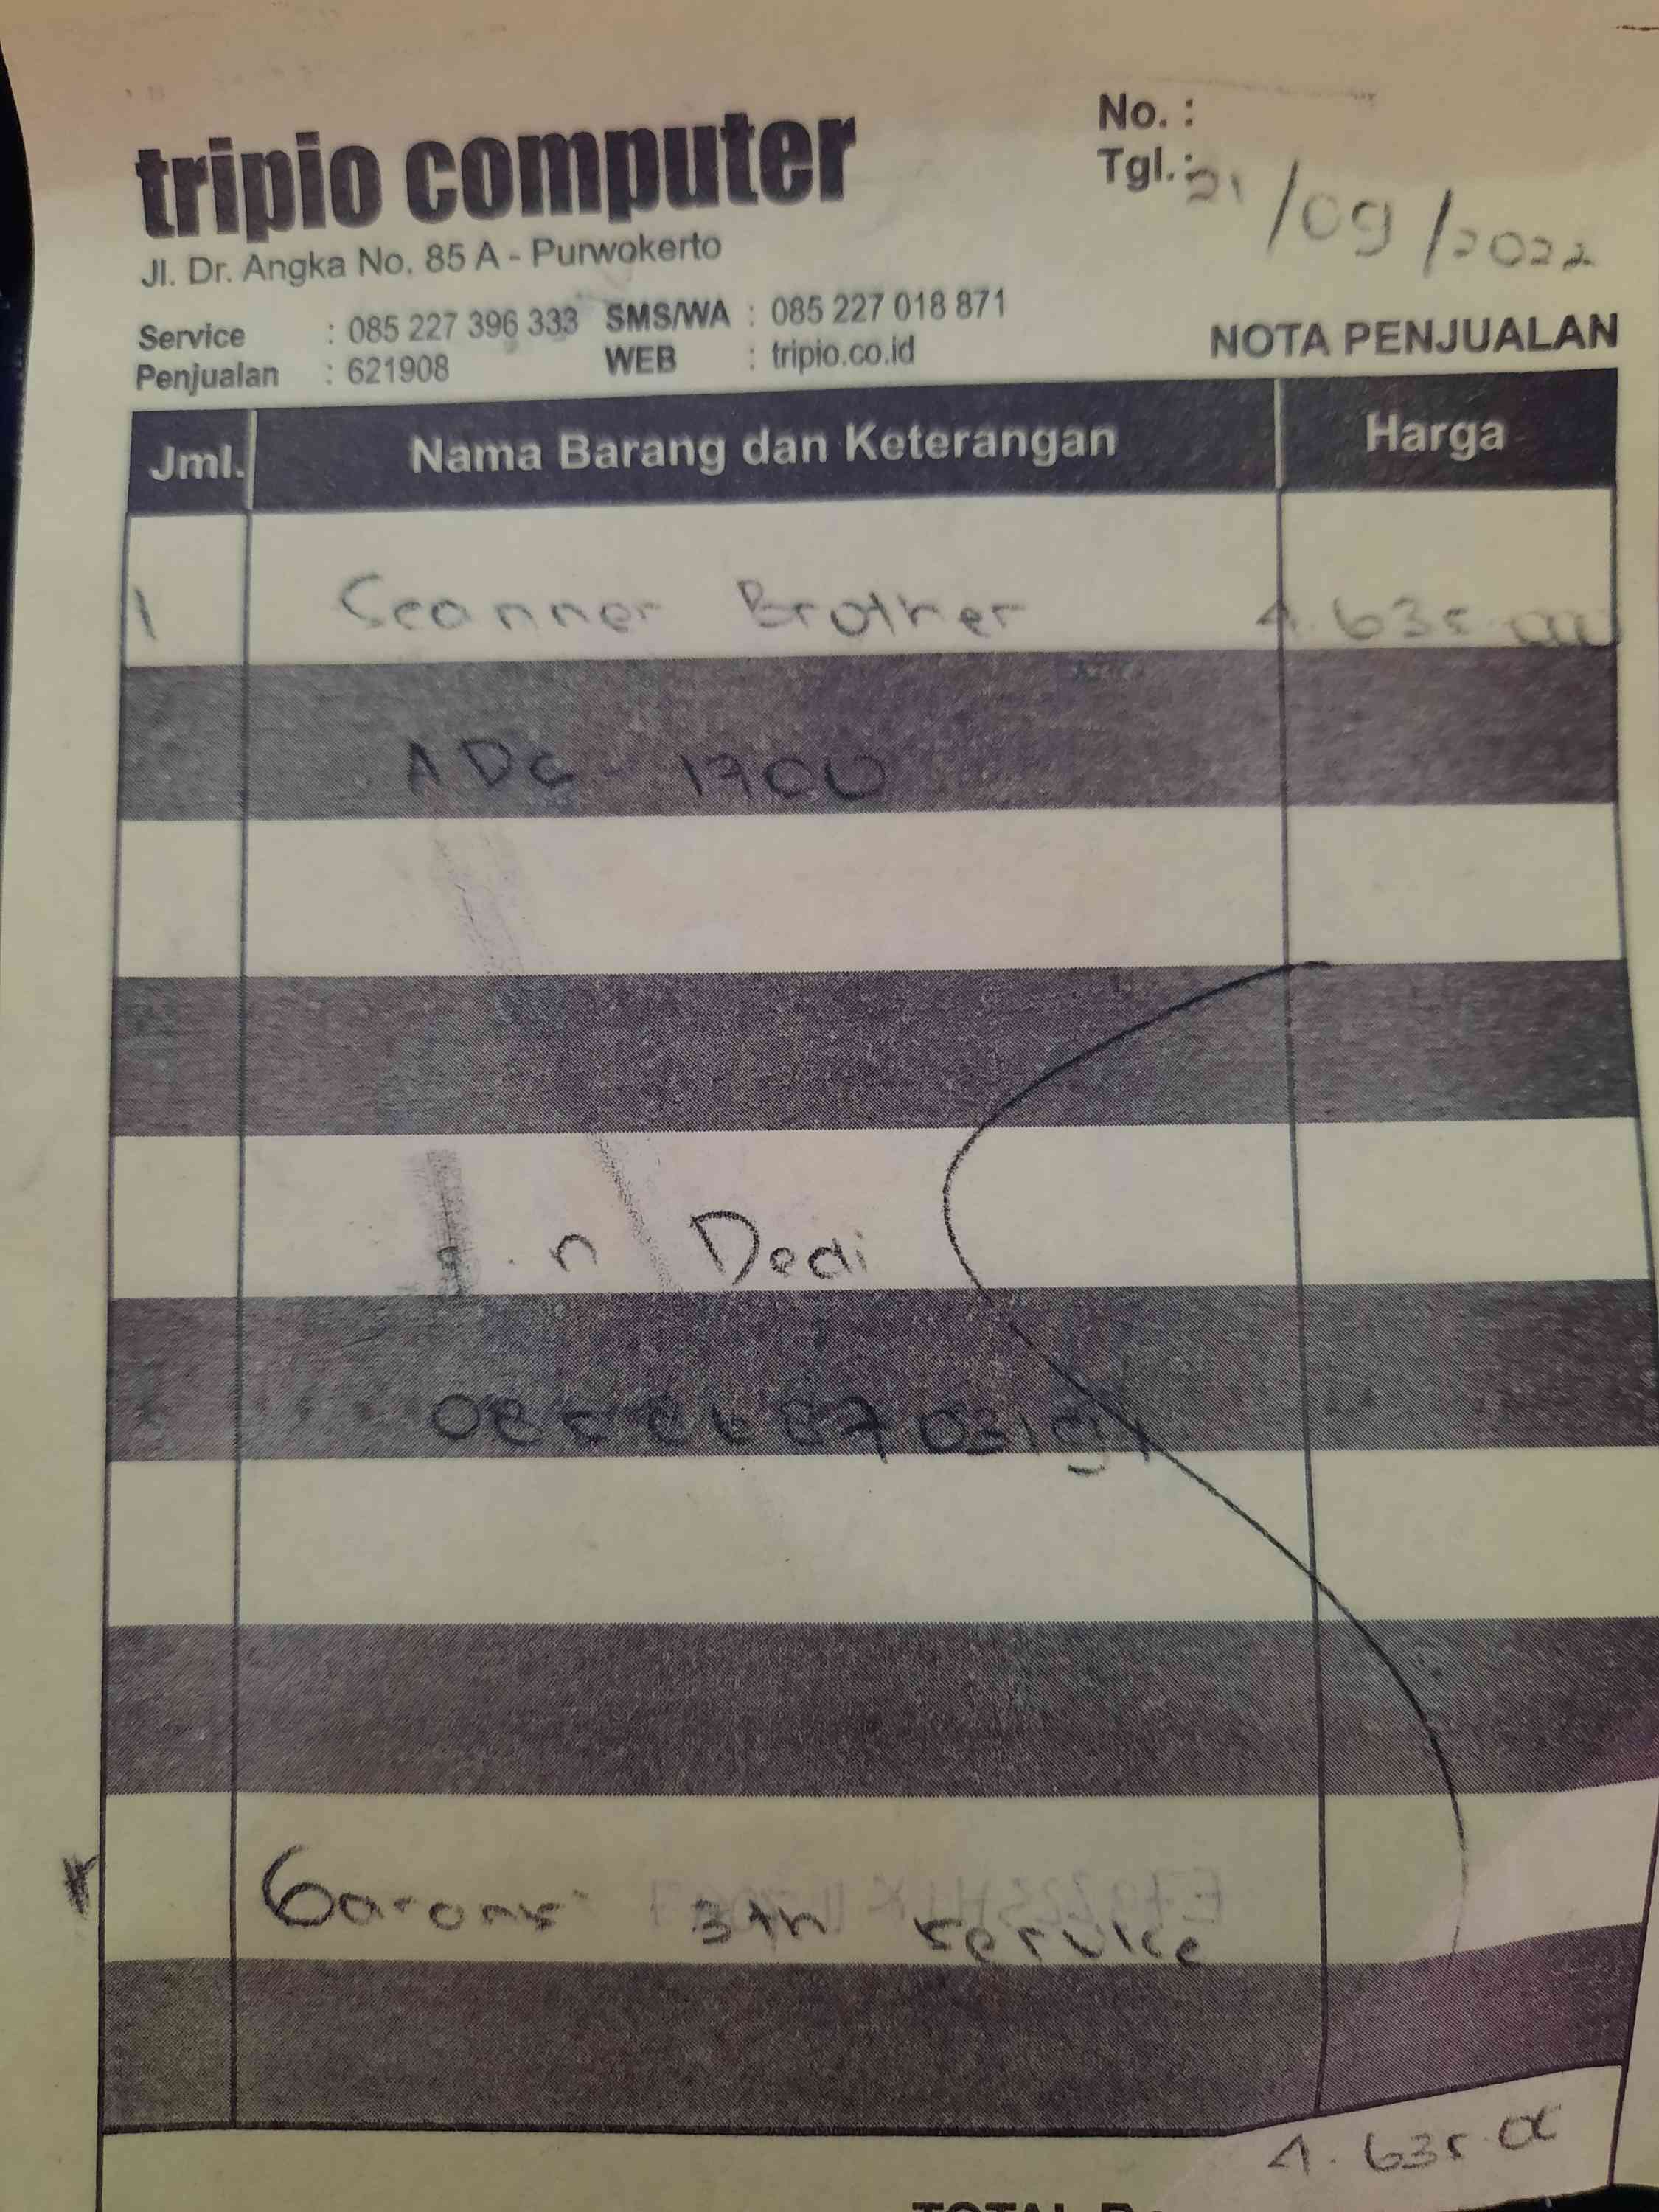 tripio computer
Jl. Dr. Angka No. 85 A - Purwokerto
Service : 085 227 396 333 SMS/WA : 085 227 018 871
Penjualan : 621908 WEB : tripio.co.id
No. :
Tgl. : 21/09/2022
NOTA PENJUALAN
Jml. Nama Barang dan Keterangan Harga
1 Scanner Brother 4.635.000
ADS - 1700
a.n Dedi
Garansi 3th service
4.635.00
TOTAL